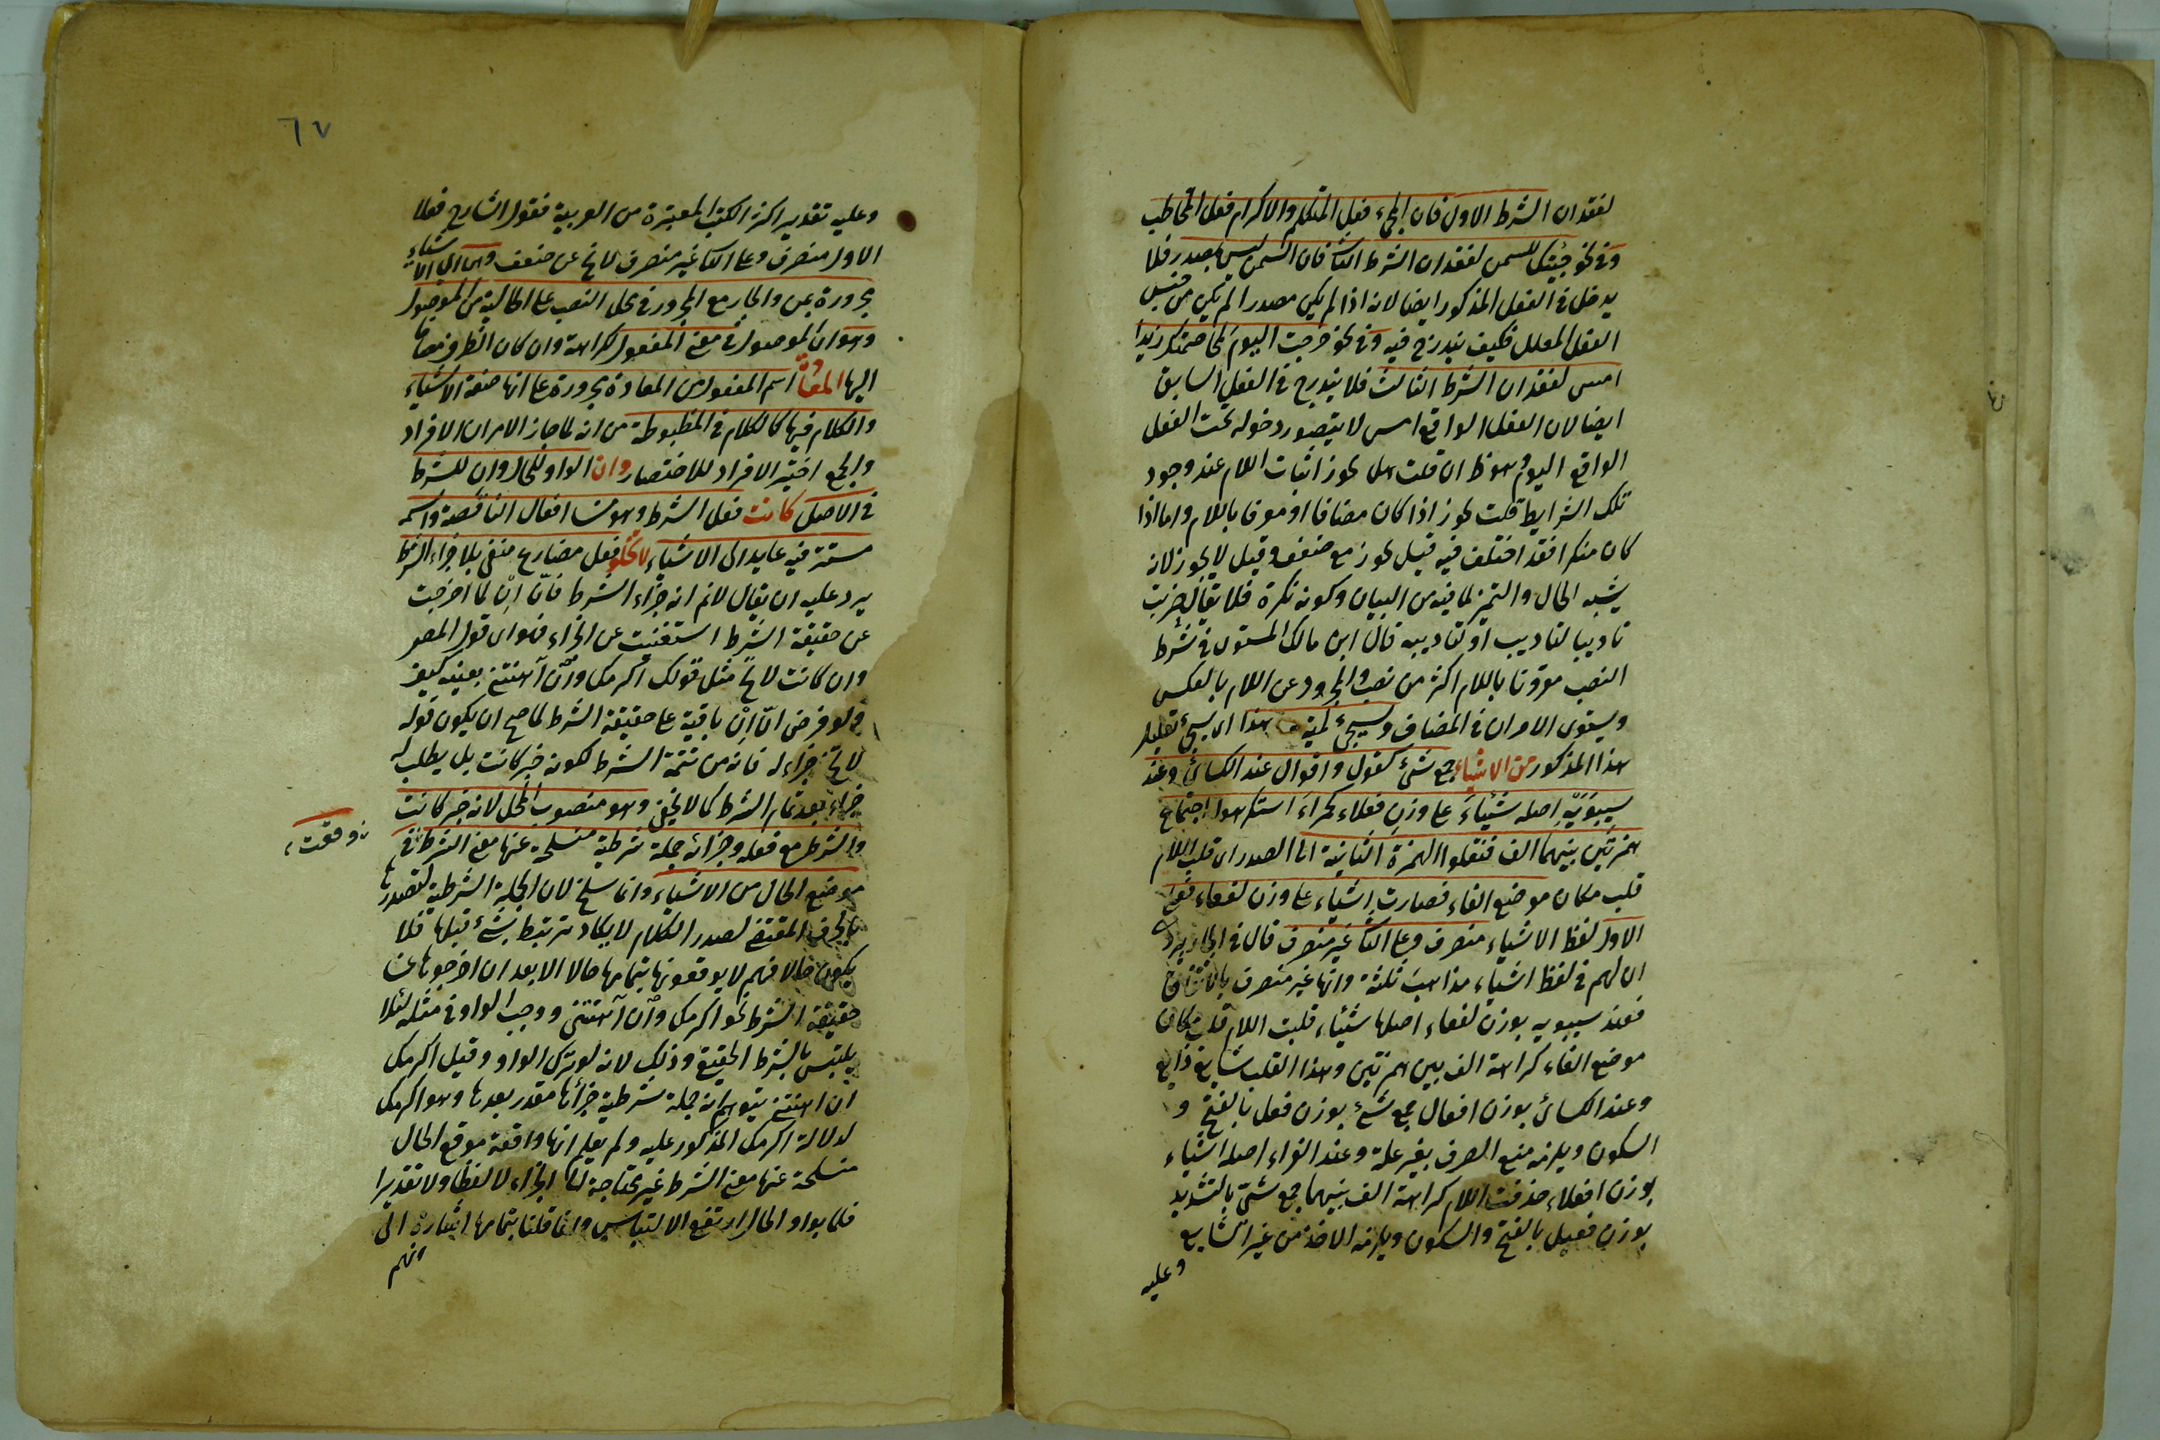 لفقدان الشرط الاول فان المجىء فعل المتكلم والاكرام فعل المخاطب
وفى نحو جئتك للسمن لفقدان الشرط الثانى فان السمن ليس بمصدر فلا
يدخل فى الفعل المذكور ايضا لانه اذا لم يكن مصدرا لم يكن من جنس
الفعل المعلل فكيف يندرج فيه وفى نحو خرجت اليوم لمخاصمتك زيدا
امس لفقدان الشرط الثالث فلا يندرج فى الفعل السابق
ايضا لان الفعل الواقع امس لا يتصور دخوله تحت الفعل
الواقع اليوم وهو ظ ان قلت هل يجوز اثبات اللام عند وجود
تلك الشرايط قلت يجوز اذا كان مضافا او معرفا باللام واما اذا
كان منكرا فقد اختلف فيه قيل يجوز مع ضعف وقيل لا يجوز لانه
يشبه الحال والتميز لما فيه من البيان وكونه نكرة فلا يقال ضربت
تاديبا لتاديب او لتاديبه قال ابن مالك المستوى فى شرط
النصب مقرونا باللام اكثر من نصب والمجرد عن اللام بالعكس
ويستوى الامران فى المضاف وسيجئ لمية هذا اى سيجئ تعليل
هذا المذكور من الاشياء جمع شئ كقول واقوال عند الكسائى وعند
سيبويه اصله شيئاء على وزن فعلاء كحمراء استكرهوا اجتماع
همزتين بينهما الف فنقلوا الهمزة الثانية الى الصدر اى قلب اللام
قلب مكان موضع الفاء فصارت اشياء على وزن لفعاء فعلى
الاول لفظ الاشياء منصرف وعلى الثانى غير منصرف قال فى الجاربردى
ان لهم فى لفظ اشياء مذاهب ثلثة وانها غير منصرف بالاتفاق
فعند سيبويه بوزن لفعاء اصلها شيئاء قلبت اللام قلب مكان
موضع الفاء كراهة الف بين همزتين وهذا القلب شايع ذايع
وعند الكسائى بوزن افعال جمع شئ بوزن فعل بالفتح و
السكون ويلزمه منع الصرف بغير علة وعند الفراء اصله اشيئاء
بوزن افعلاء حذفت اللام كراهة الف بينهما جمع شئ بالتشديد
بوزن فعيل بالفتح والسكون ويلزمه الاخذ من غير الشايع
وعليه
٦٧
وعليه تقدير اكثر الكتب المعتبرة من العربية فقول الشارح فعلى
الاول منصرف وعلى الثانى غير منصرف لا يخ عن ضعف وهى اى الاشياء
مجرورة بمن والجار مع المجرور فى محل النصب على الحالية من الموصول
وهو ان الموصول فى معنى المفعول كراهة وان كان الظرف مضافا
اليها المعادة اسم المفعول من المعادة مجرورة على انها صفة الاشياء
والكلام فيها كالكلام فى المظبوطة من انه لما جاز الامران الافراد
والجمع اختير الافراد للاختصار وان الواو للحال وان للشرط
فى الاصل كانت فعل الشرط وهو من افعال الناقصة واسمه
مستتر فيه عايد الى الاشياء لا تخلو فعل مضارع منفى بلا جزاء الشرط
يرد عليه ان يقال لانم انه جزاء الشرط فان ان لما اخرجت
عن حقيقة الشرط استغنيت عن الجزاء فهو اى قول المصر
وان كانت لا تخ مثل قولك اكرمك وان آهنتنى بعينه كيف
لو فرض ان ان باقية على حقيقة الشرط لما صح ان يكون قوله
لا تخ جزاء له فانه من تتمة الشرط لكونه خبر كانت بل يطلب له
جزاء بعد تمام الشرط كما لا يخفى وهو منصوب المحل لانه خبر كانت
والشرط مع فعله وجزائه جملة شرطية منسلخة عنها معنى الشرط فى
وقعت
موضع الحال من الاشياء وانما سلخ لان الجملة الشرطية لتصدرها
بالحرف المقتضى لصدر الكلام لا يكاد ترتبط بشئ قبلها فلا
يكون حالا فهم لا يوقعونها بتمامها حالا الا بعد ان اخرجوها عن
حقيقة الشرط نحو اكرمك وان آهنتنى ووجب الواو فى مثله لئلا
يلتبس بالشرط الحقيقى وذلك لانه لو ترك الواو وقيل اكرمك
ان اهنتنى يتوهم انه جملة شرطية جزائها مقدر بعدها وهو اكرمك
لدلالة اكرمك المذكور عليه ولم يعلم انها واقعة موقع الحال
منسلخة عنها معنى الشرط غير محتاجة الى الجزاء لا لفظا ولا تقديرا
فلما بواو الحال ارتفع الالتباس وانما قلنا بتمامها اشارة الى
انهم